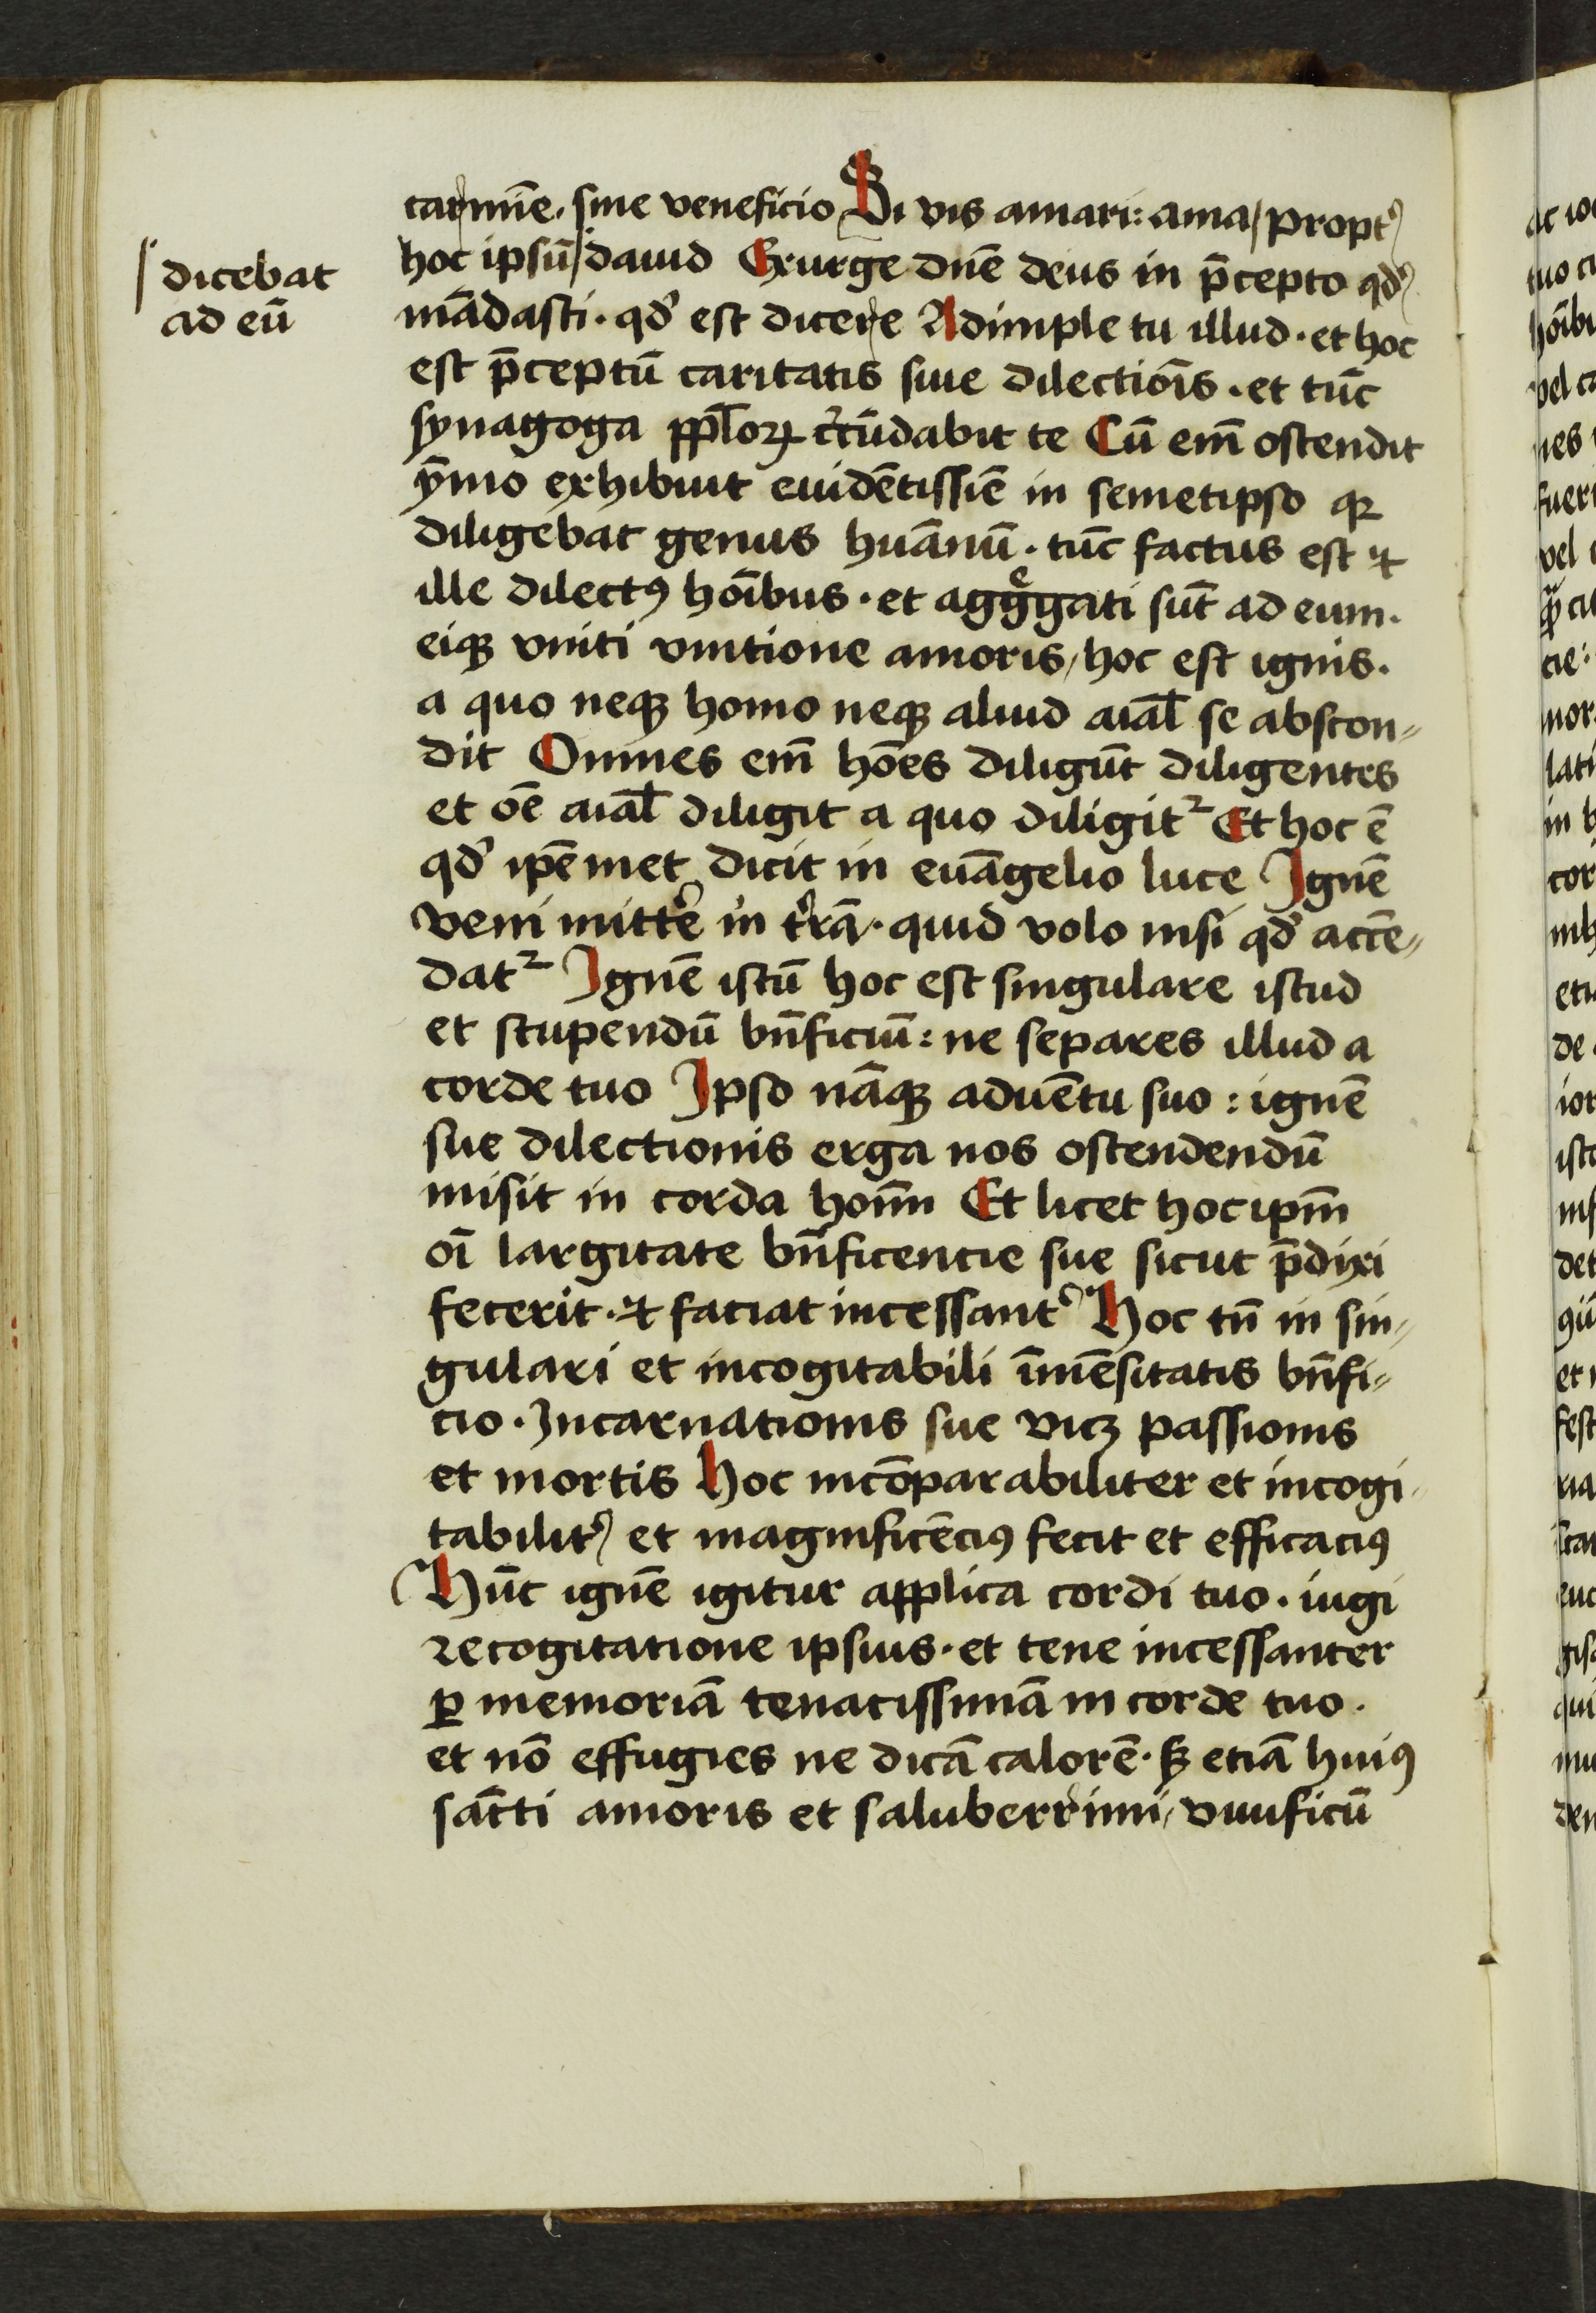 carmīe. sine veneficio Si vis amari: ama/ propt᾿
hoc ipsū/ dauid Exurge dn̄e deus in p̄cepto qd᾿
dicebat
ad eū
mādasti. qd᾿ est dicere Adimple tu illud. et hoc
est p̄ceptū caritatis siue dilectiōis. et tūc
synagoga pp̄loꝝ c᾿cūdabit te Cū em̄ ostendit
ȳmo exhibuit euidētissīe in semetipso qꝫ
diligebat genus huānū. tūc factus est ⁊
ille dilectꝰ hōibus. et aggͤgati sūt ad eum.
eiqꝫ vniti vnitione amoris/ hoc est ignis.
a quo neqꝫ homo neqꝫ aliud aīal se abscon⸗
dit Omnes em̄ hōes diligūt diligentes
et oē aīal diligit a quo diligit᷑ Et hoc ē
qd᾿ ip̄emet dicit in euāgelio luce Ignē
veni mitt᾿e in t᾿rā. quid volo nisi qd᾿ accē⸗
dat᷑ Ignē istū hoc est singulare istud
et stupendū bn̄ficiū: ne separes illud a
corde tuo Ipso nāqꝫ aduētu suo: ignē
sue dilectionis erga nos ostendendū
misit in corda hoīm Et licet hoc ip̄m
oī largitate bn̄ficentie sue sicut p̄dixi
fecerit. ⁊ faciat incessant᾿ Hoc tn̄ in sin⸗
gulari et incogitabili īmēsitatis bn̄fi⸗
cio. Incarnationis sue vicꝫ passionis
et mortis Hoc incōparabiliter et incogi⸗
tabilit᾿ et magnificēciꝰ fecit et efficaciꝰ
Hūc ignē igitur applica cordi tuo. iugi
recogitatione ipsius. et tene incessanter
ꝑ memoriā tenacissimā in corde tuo.
et nō effugies ne dicā calorē. sꝫ etiā huiꝰ
sācti amoris et saluberrimi/ viuificū